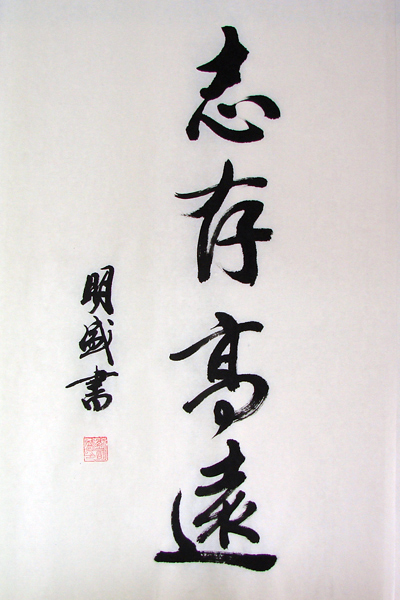 志存高遠
明盛書